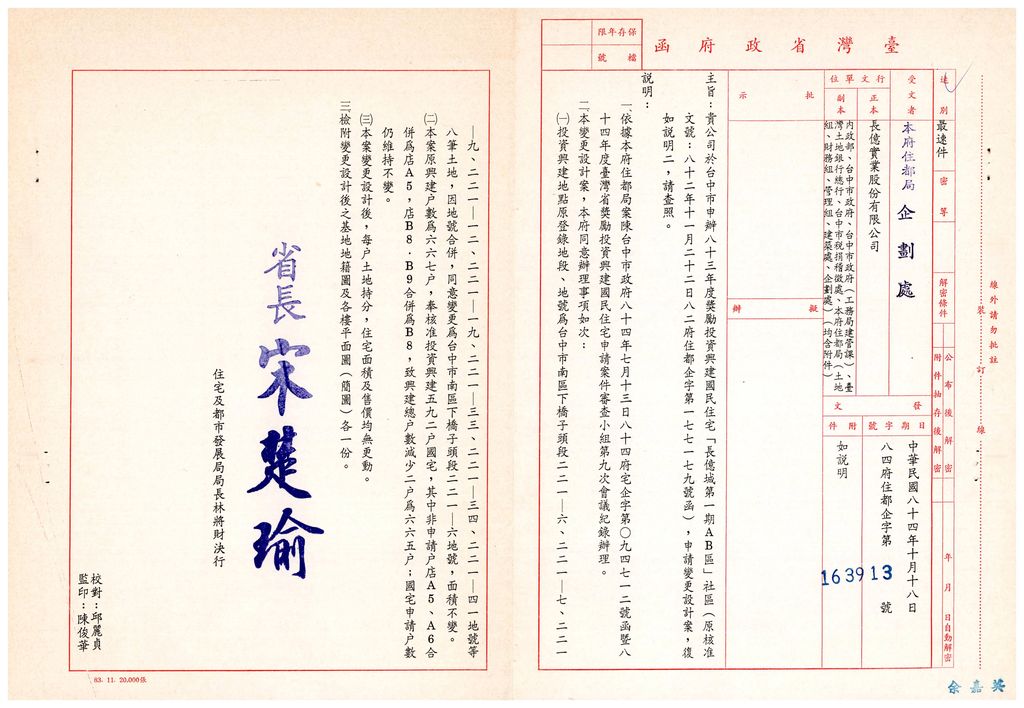 臺灣省政府函
保存年限
檔號
速別
最速件
密等
解密條件
公布後解密
附件抽存後解密
年月日自動解密
受文者
本府住都局企劃處
行文單位
正本
長億實業股份有限公司
副本
內政部、台中市政府、台中市政府(工務局建管課)、臺
灣土地銀行總行、台中市稅捐稽徵處、本府住都局(土地
組、財務組、管理組、建築處、企劃處)(均含附件)
發文
日期
中華民國八十四年十月十八日
字號
八四府住都企字第163913號
附件
如說明
批示
擬辦
主旨：貴公司於台中市申辦八十三年度獎勵投資興建國民住宅「長億城第一期AB區」社區(原核准
文號：八十二年十一月二十二日八二府住都企字第一七七一七九號函)，申請變更設計案，復
如說明二，請查照。
說明：
一、依據本府住都局案陳台中市政府八十四年七月十三日八十四府宅企字第〇九四七一二號函暨八
十四年度臺灣省獎勵投資興建國民住宅申請案件審查小組第九次會議紀錄辦理。
二、本變更設計案，本府同意辦理事項如次：
㈠投資興建地點原登錄地段、地號為台中市南區下橋子頭段二二一—六、二二一—七、二二一
—九、二二一—一二、二二一—一九、二二一—三三、二二一—三四、二二一—四一地號等
八筆土地，因地號合併，同意變更為台中市南區下橋子頭段二二一—六地號，面積不變。
㈡本案原興建戶數為六六七戶，奉核准投資興建五九二戶國宅，其中非申請戶店A5、A6合
併為店A5，店B8．B9合併為B8，致興建總戶數減少二戶為六六五戶；國宅申請戶數
仍維持不變。
㈢本案變更設計後，每戶土地持分，住宅面積及售價均無更動。
三、檢附變更設計後之基地地籍圖及各樓平面圖(簡圖)各一份。
省長宋楚瑜
住宅及都市發展局局長林將財決行
校對：邱麗貞
監印：陳俊華
83. 11. 20,000張
裝訂線
線外請勿批註
余嘉英